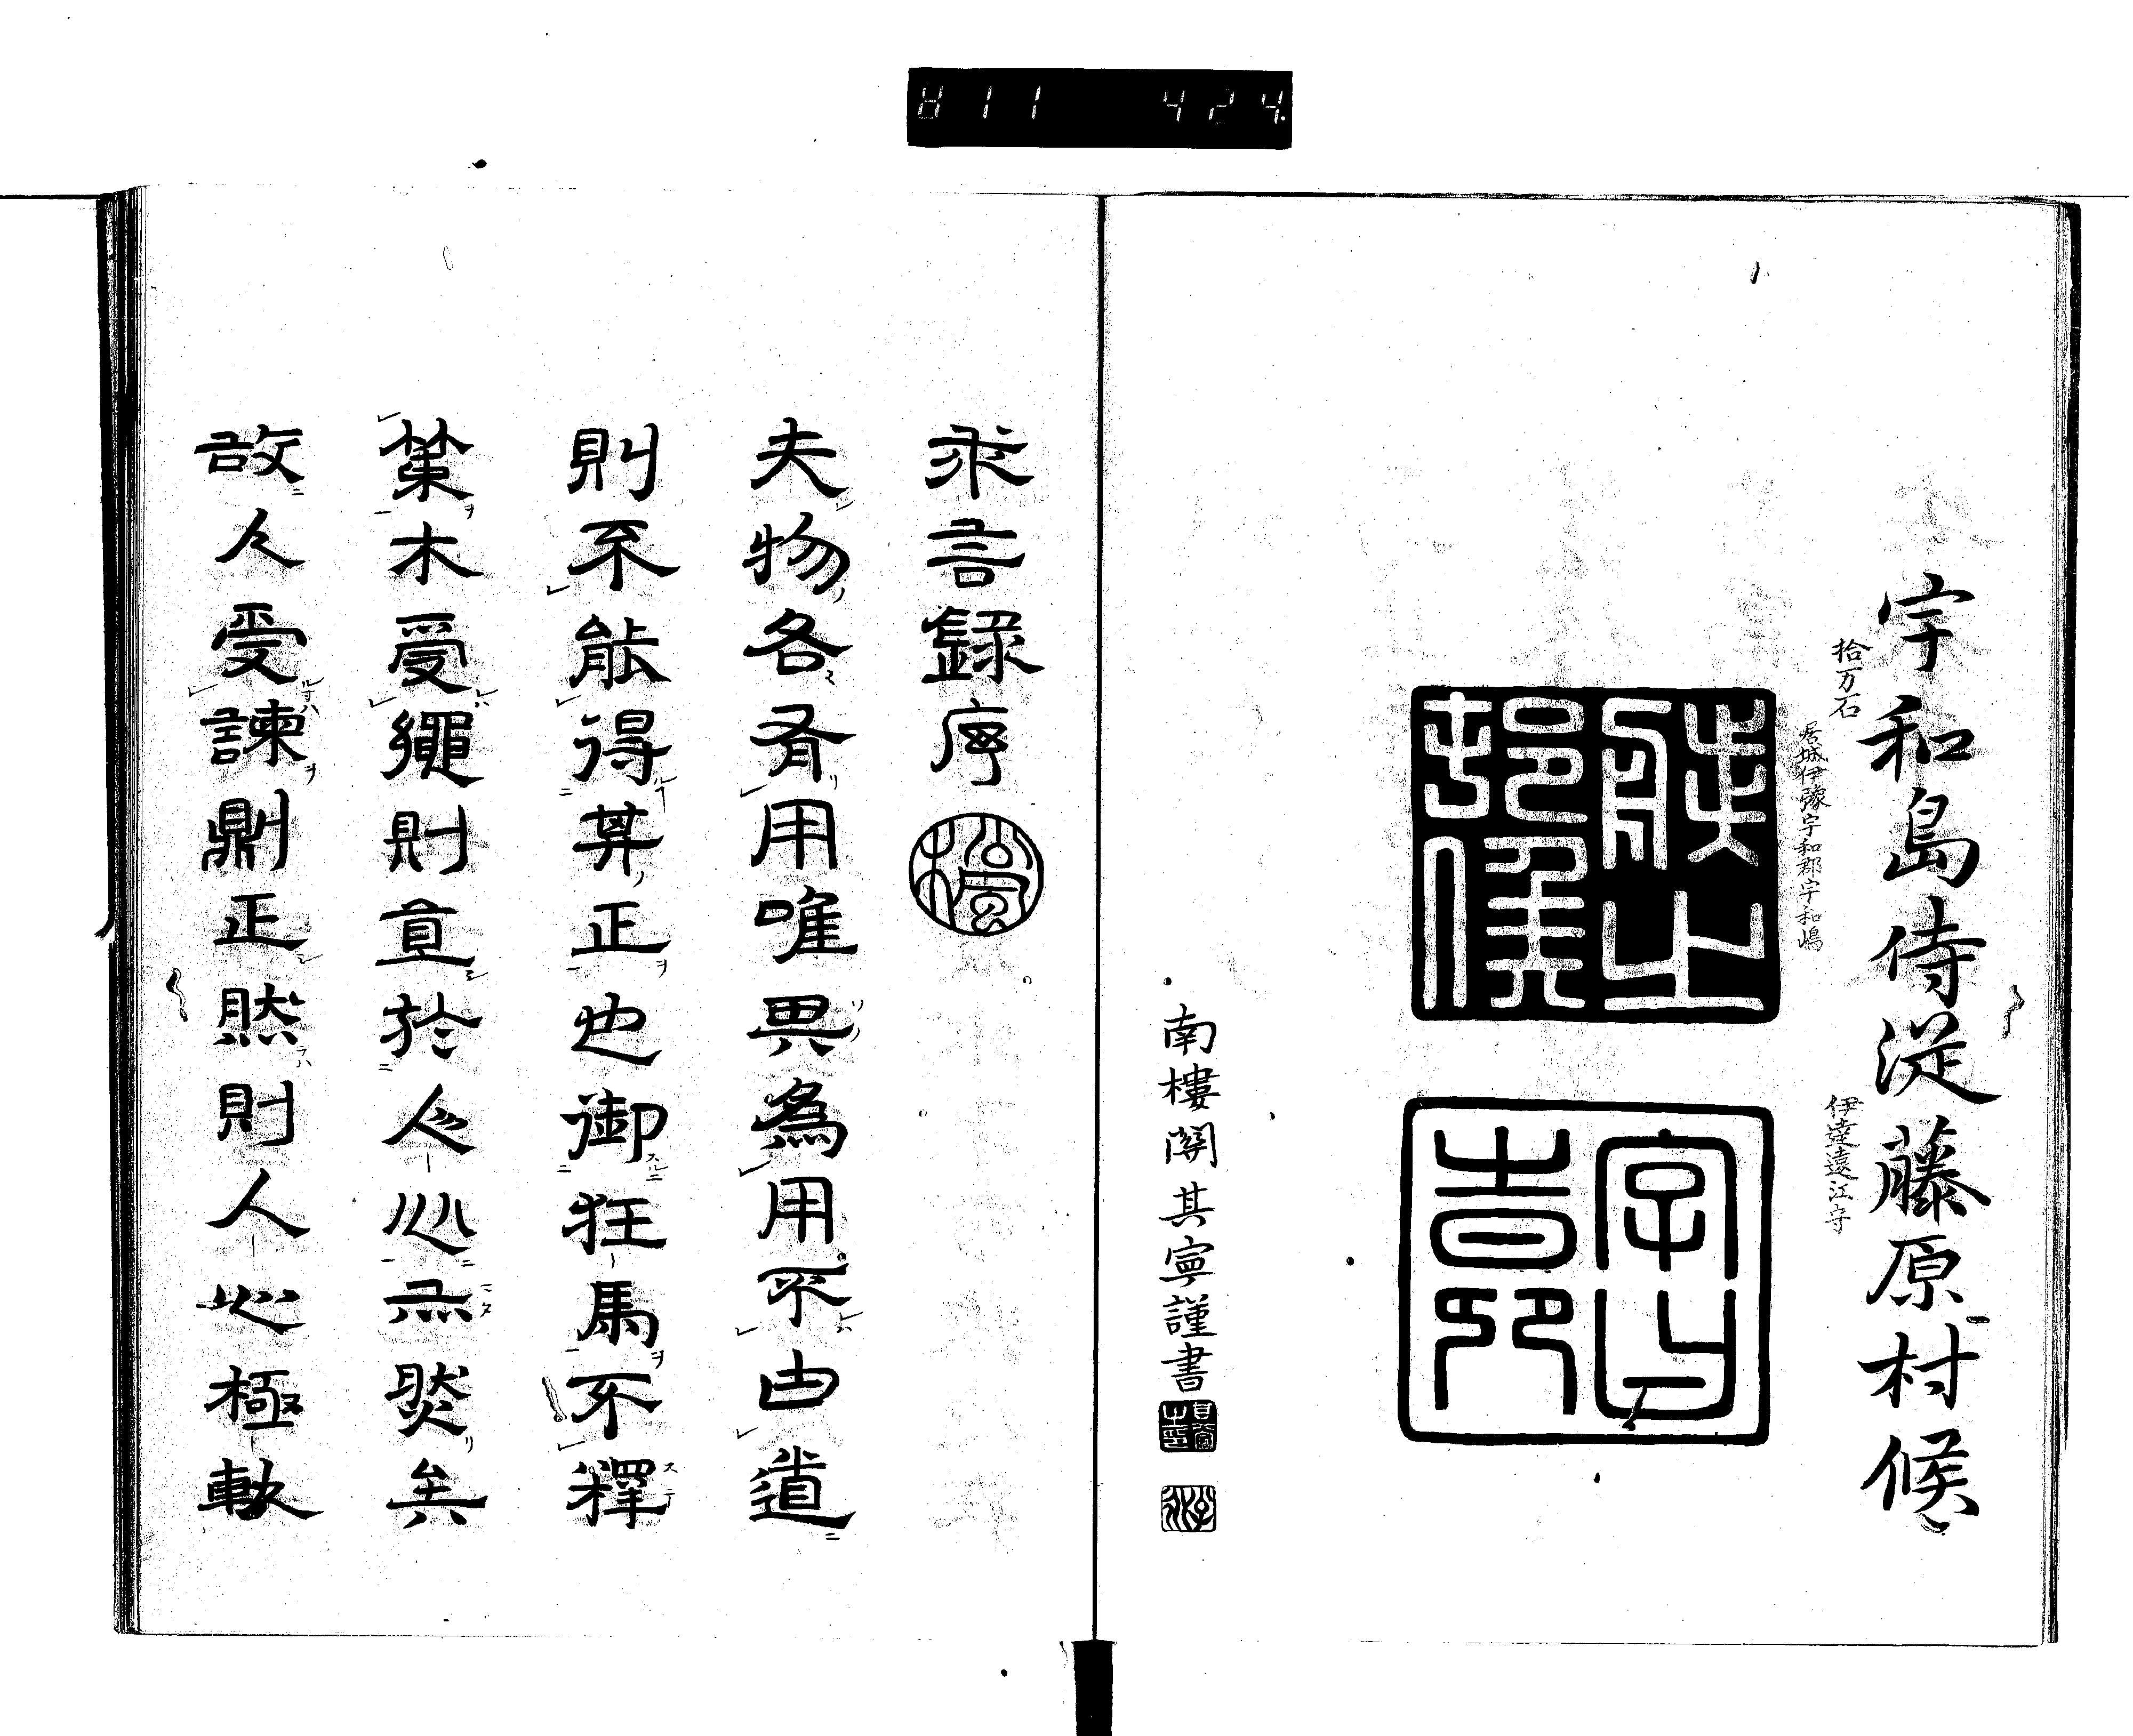 宇和島侍従藤原村候
拾万石
居城伊豫宇和郡宇和嶋
伊達遠江守
藤原
村候
字曰
南樓関其寧謹書
求言録序
夫物各有用唯異爲用不由道
則不能得其正也御狂馬不釋
策木受繩則直於人心亦然矣
故人受諫則正然則人心極軌
811 424